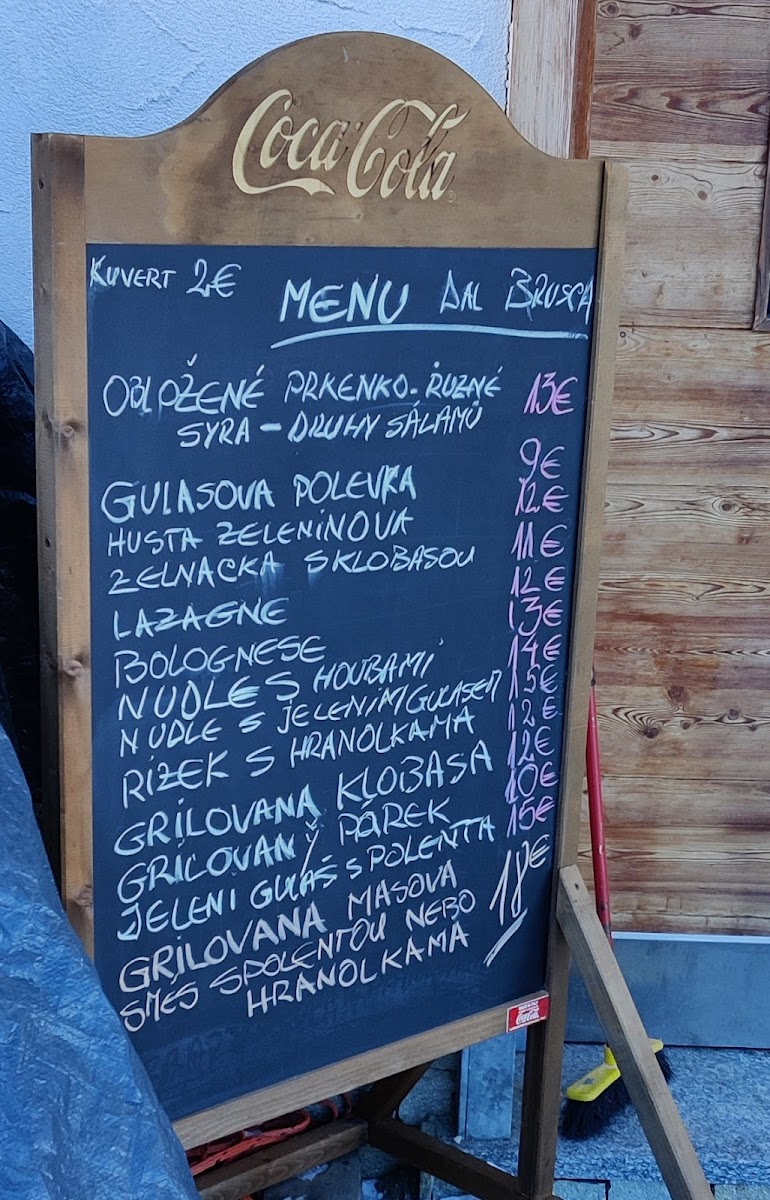 Coca-Cola
KUVERT 2€
MENU DAL BRUSCA
OBLOŽENÉ PRKENKO-RŮZNÉ 13€
SYRA - DRUHY SÁLAMŮ
GULASOVA POLEVKA 9€
HUSTA ZELENINOVA 12€
ZELNACKA S KLOBASOU 11€
LAZAGNE 12€
BOLOGNESE 13€
NUDLE S HOUBAMI 14€
NUDLE S JELENIM GULASEM 15€
RÍZEK S HRANOLKAMA 12€
GRILOVANA KLOBASA 12€
GRILOVANÝ PÁREK 10€
JELENI GULAŠ S POLENTA 15€
GRILOVANA MASOVA 18€
SMÉS SPOLENTOU NEBO
HRANOLKAMA
Coca-Cola